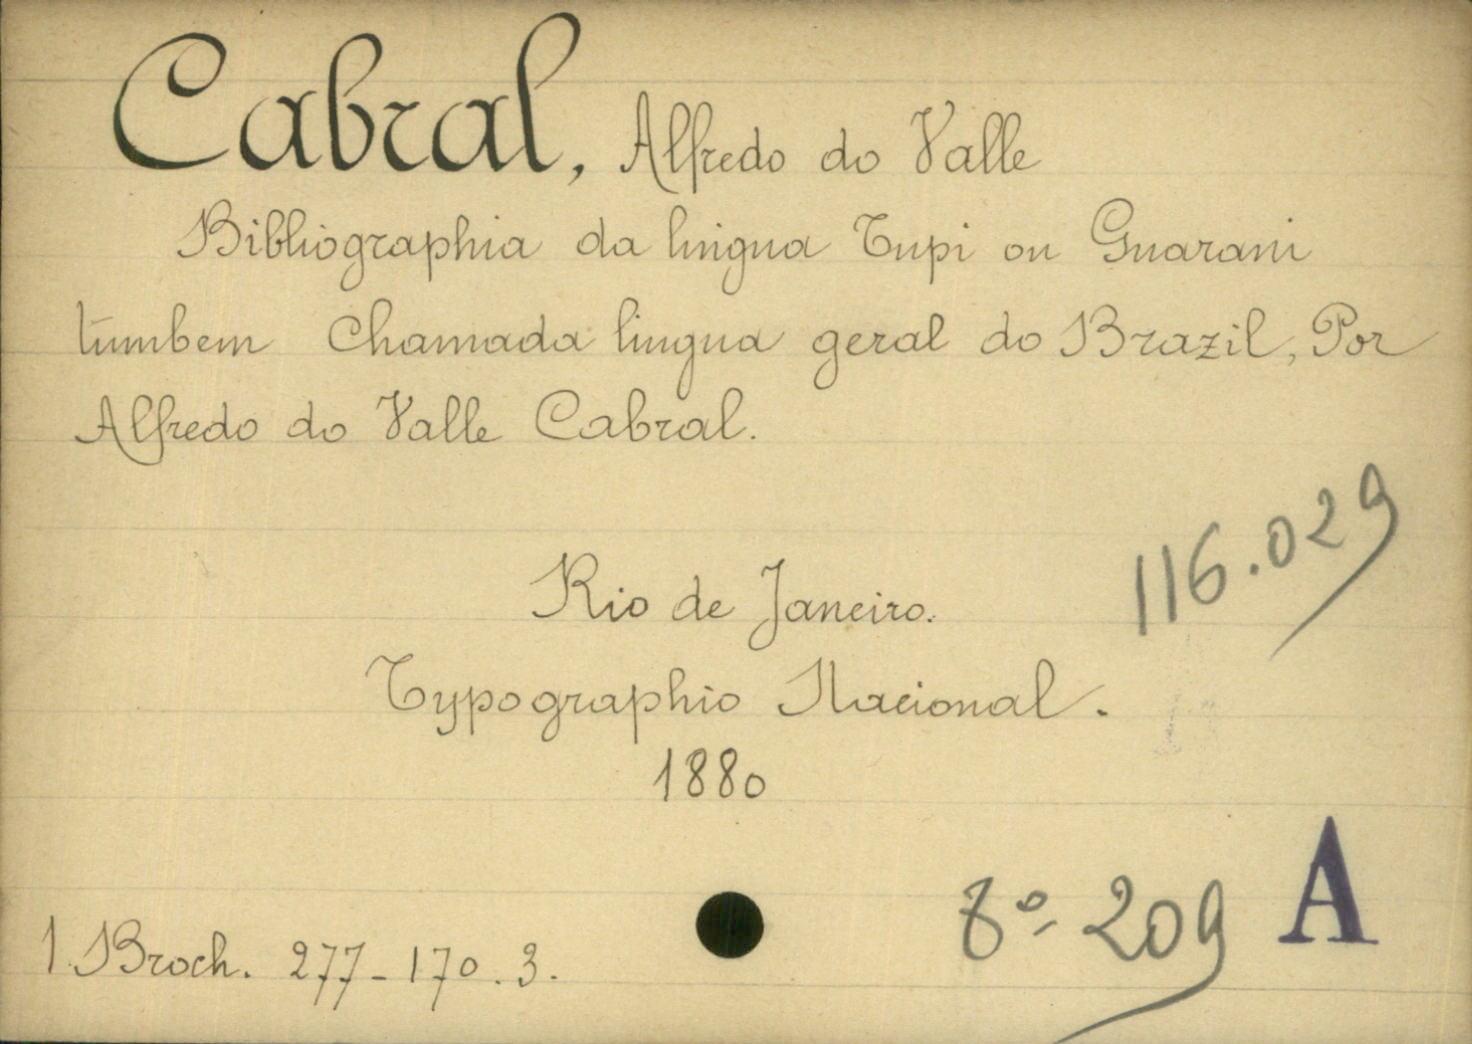 Cabral, Alfredo do Valle
Bibliographia da lingua Tupi ou Guarani
tumbem Chamada lingua geral do Brazil, Por
Alfredo do Valle Cabral.
116.029
Rio de Janeiro.
Typographio Nacional.
1880
8º- 209 A
1 Broch. 277-170.3.